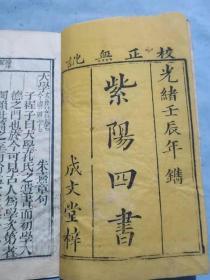 校正無訛
光緒壬辰年鐫
紫陽四書
成文堂梓
大學
朱熹章句
子程子曰大學孔氏之遺書而初學入
德之門也於今可見古人為學次第者
獨賴此篇之存